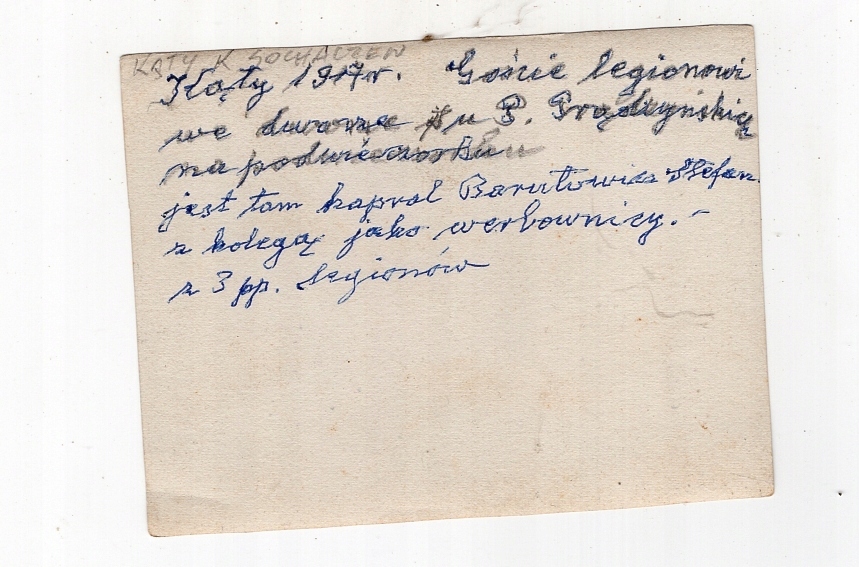 KĄTY K SOCHACZEW
Kąty 1917r. Goście legionowi
we dworze u P. Prądzyńskich
na podwieczorku
jest tam kapral Barutowicz Stefan
z kolegą jako werbownicy. -
z 3 pp. Legionów